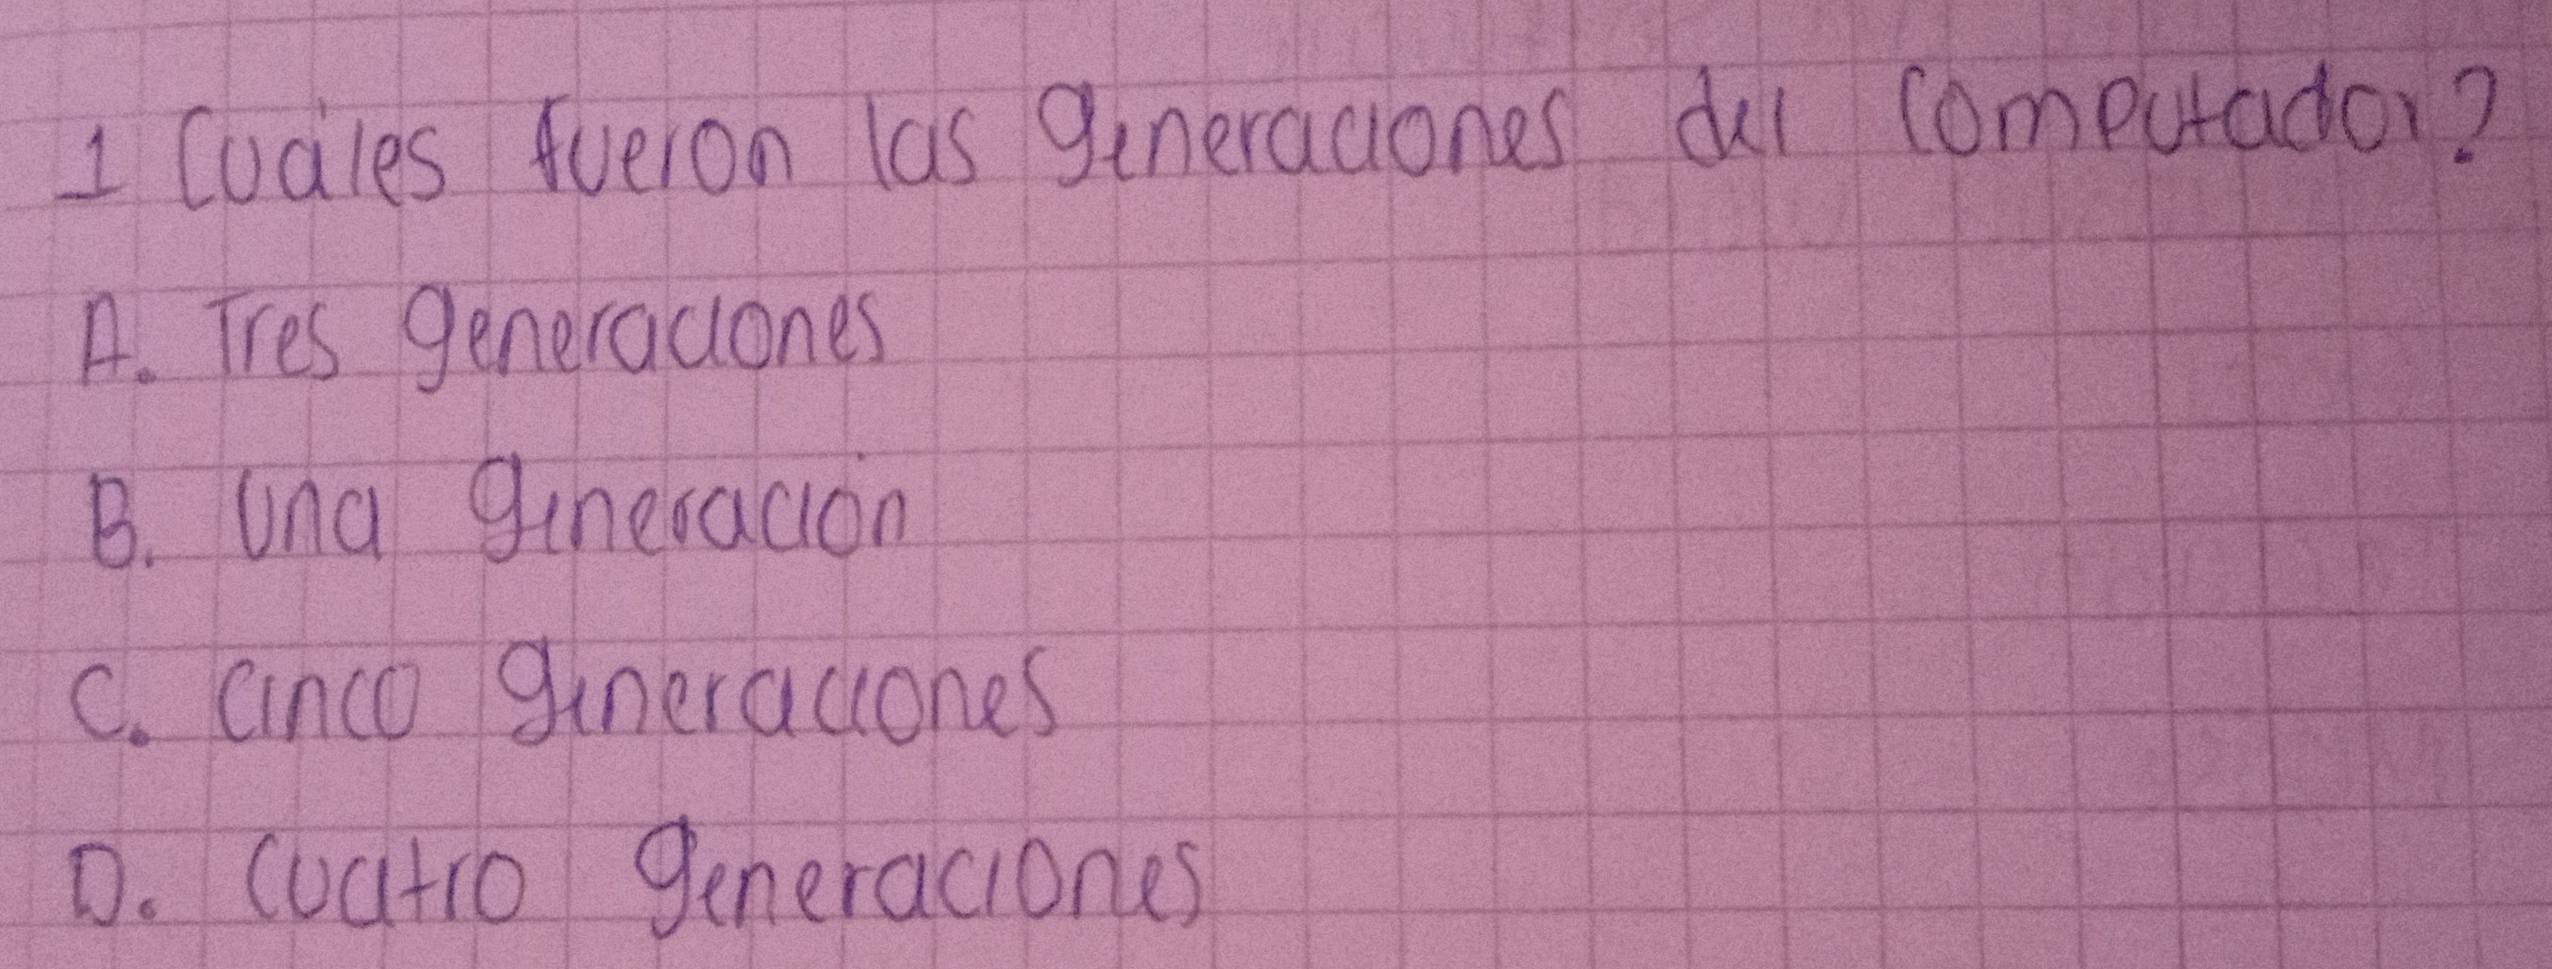 1 Cuáles fueron las generaciones del computador?
A. Tres generaciones
B. Una generación
C. Cinco generaciones
D. Cuatro generaciones